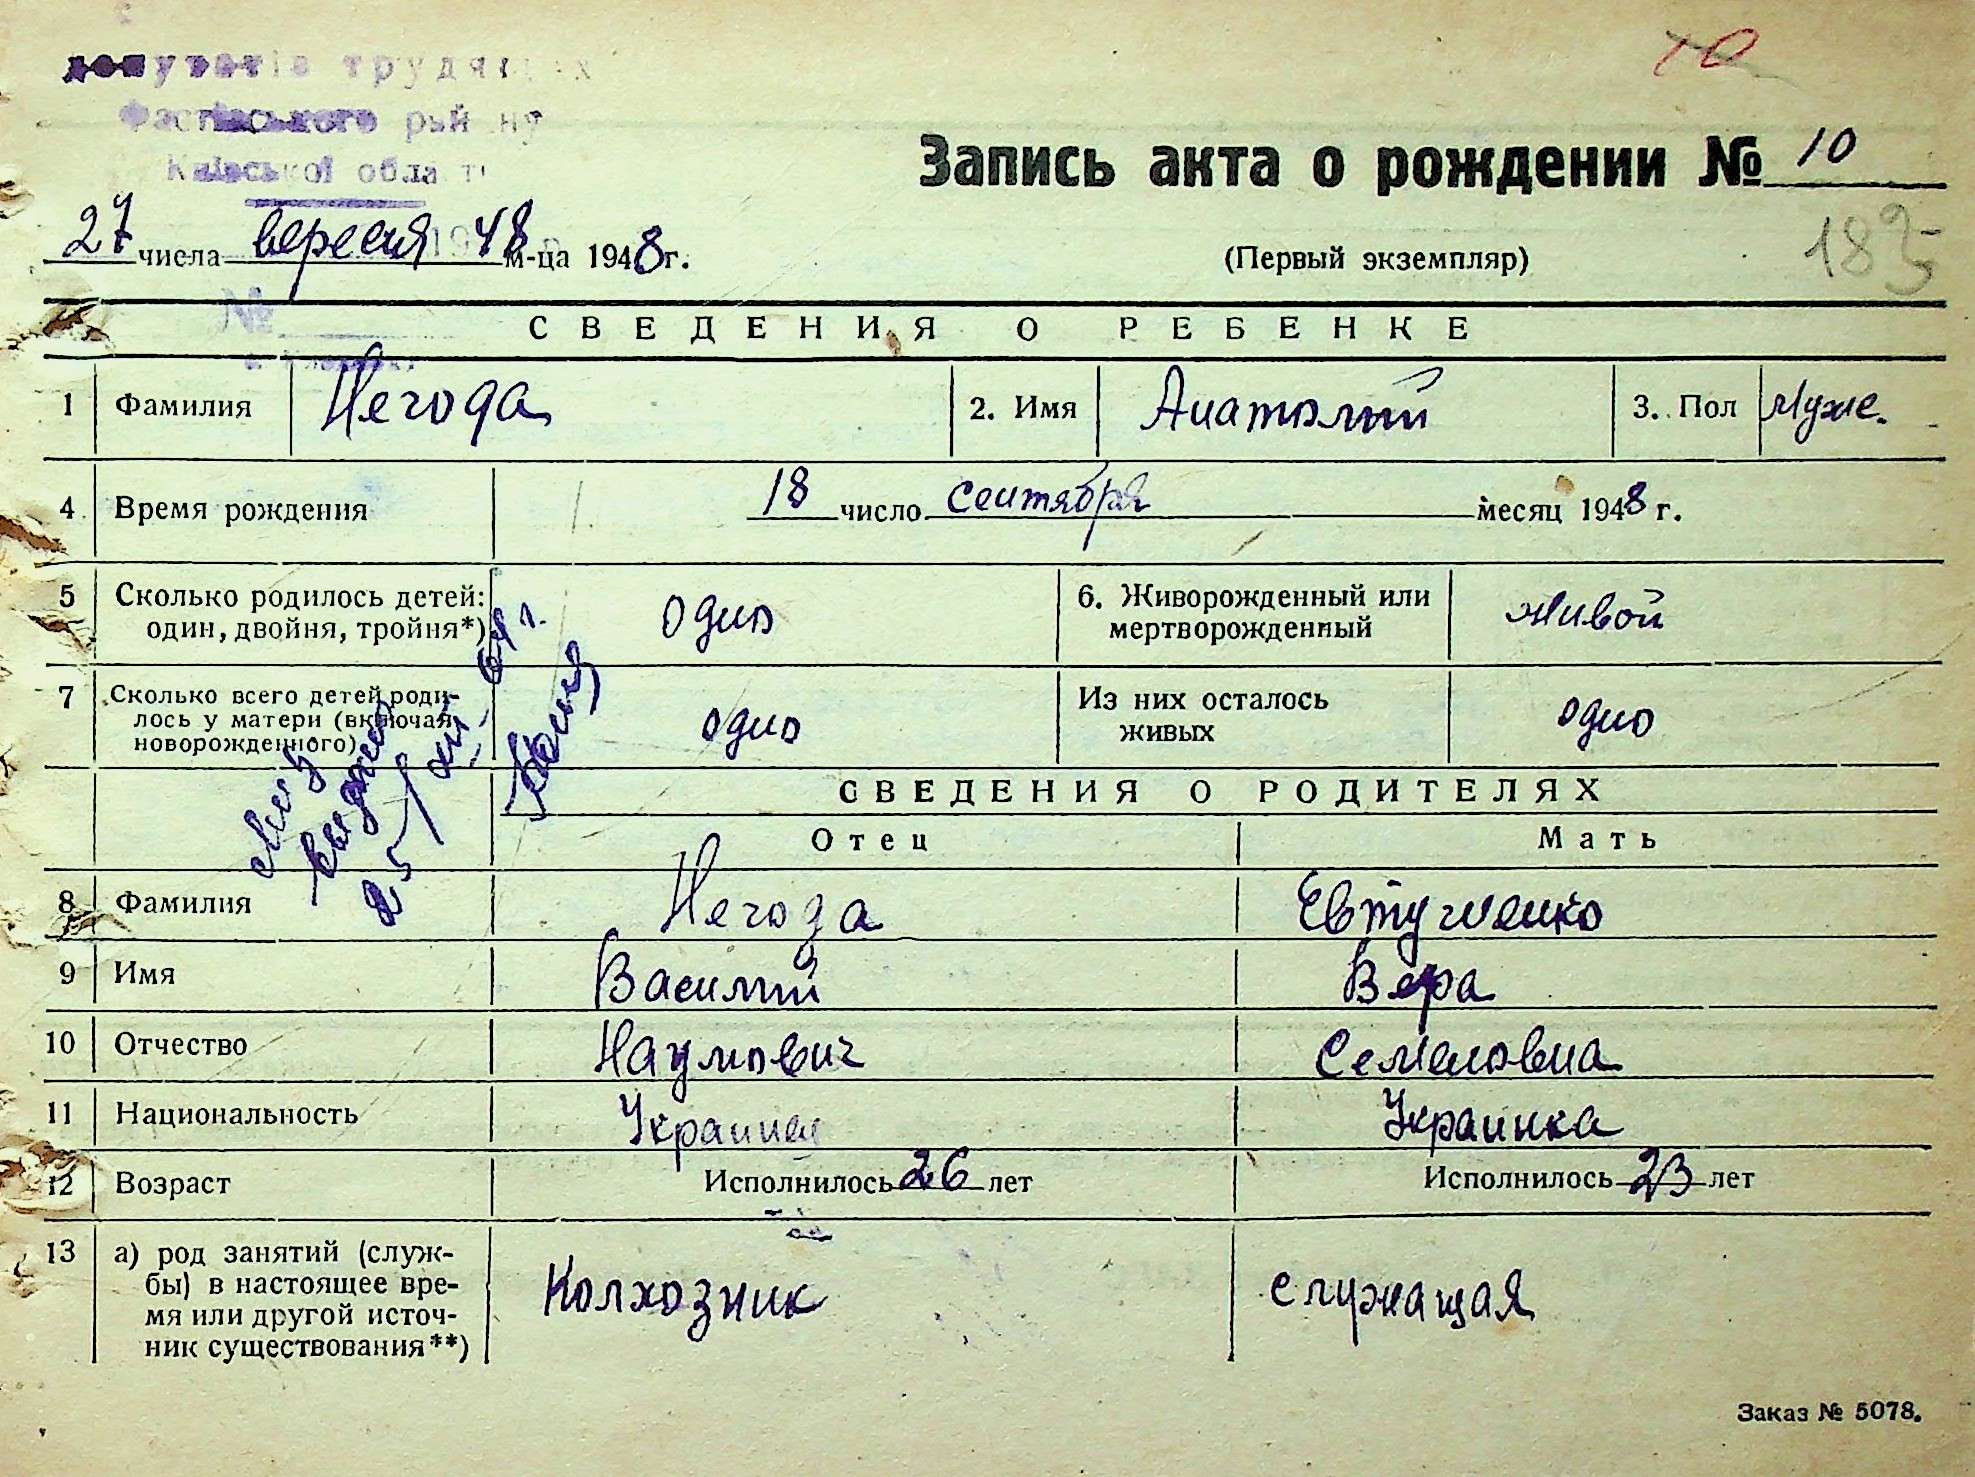 депутатів трудящих
Фастівського району
Київської області
10
Запись акта о рождении № 10
27 числа вересня 48 м-ца 1948 г.
(Первый экземпляр)
185
№
СВЕДЕНИЯ О РЕБЕНКЕ
1 Фамилия Негода 2. Имя Анатолий 3. Пол Муже.
4 Время рождения 18 число сентября месяц 1948 г.
5 Сколько родилось детей: один, двойня, тройня*) одно 6. Живорожденный или мертворожденный живой
7 Сколько всего детей родилось у матери (включая новорожденного) одно Из них осталось живых одно
СВЕДЕНИЯ О РОДИТЕЛЯХ
Отец Мать
8 Фамилия Негода Евтушенко
9 Имя Василий Вера
10 Отчество Наумович Семеновна
11 Национальность Украинец Украинка
12 Возраст Исполнилось 26 лет Исполнилось 23 лет
13 а) род занятий (служ-
бы) в настоящее вре-
мя или другой источ-
ник существования**)
Колхозник служащая
Заказ № 5078.